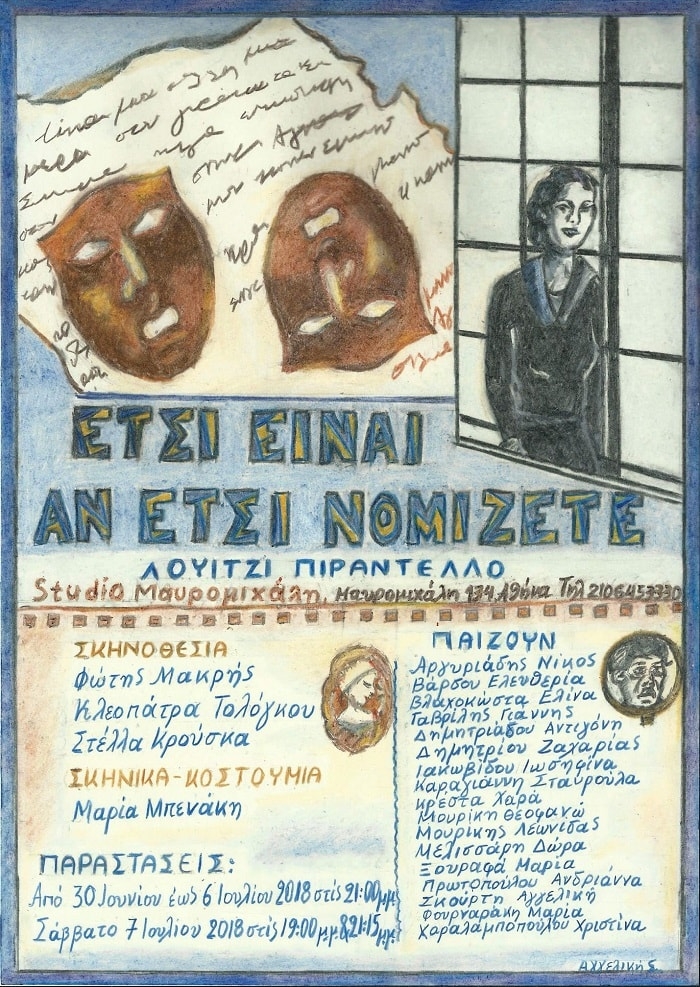 ΕΤΣΙ ΕΙΝΑΙ
ΑΝ ΕΤΣΙ ΝΟΜΙΖΕΤΕ
ΛΟΥΙΤΖΙ ΠΙΡΑΝΤΕΛΛΟ
Studio Μαυρομιχάλη, Μαυρομιχάλη 134, Αθήνα Τηλ 2106453330
ΣΚΗΝΟΘΕΣΙΑ
Φώτης Μακρής
Κλεοπάτρα Τολόγκου
Στέλλα Κρούσκα
ΣΚΗΝΙΚΑ-ΚΟΣΤΟΥΜΙΑ
Μαρία Μπενάκη
ΠΑΡΑΣΤΑΣΕΙΣ:
Από 30 Ιουνίου έως 6 Ιουλίου 2018 στις 21:00 μ.μ.
Σάββατο 7 Ιουλίου 2018 στις 19:00 μ.μ & 21:15 μ.μ
ΠΑΙΖΟΥΝ
Αργυριάδης Νίκος
Βάρσου Ελευθερία
Βλαχοκώστα Ελίνα
Γαβρίλης Γιάννης
Δημητριάδου Αντιγόνη
Δημητρίου Ζαχαρίας
Ιακωβίδου Ιωσηφίνα
Καραγιάννη Σταυρούλα
Κρέστα Χαρά
Μουρίκη Θεοφανώ
Μουρίκης Λεωνίδας
Μελισσάρη Δώρα
Ξουραφά Μαρία
Πρωτοπούλου Ανδριάννα
Σκούρτη Αγγελική
Φουρναράκη Μαρία
Χαραλαμποπούλου Χριστίνα
Αγγελική Σ.